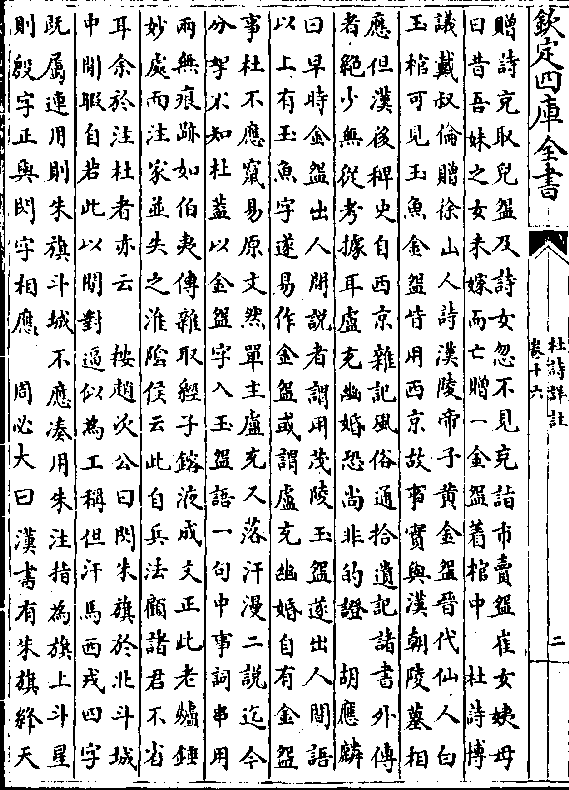 欽定四庫全書
杜詩詳註
卷十六
二
贈詩充取兒盌及詩女忽不見充詣市賣盌崔女姨母
曰昔吾妹之女未嫁而亡贈一金盌着棺中　杜詩博
議戴叔倫贈徐山人詩漢陵帝子黃金盌晉代仙人白
玉棺可見玉魚金盌皆用西京故事實與漢朝陵墓相
應但漢後稗史自西京雜記風俗通拾遺記諸書外傳
者絕少無從考據耳盧充幽婚恐尚非的證　胡應麟
曰早時金盌出人間說者謂用茂陵玉盌遂出人間語
以上有玉魚字遂易作金盌或謂盧充幽婚自有金盌
事杜不應竄易原文然單主盧充又落汗漫二說迄今
分挐不知杜蓋以金盌字入玉盌語一句中事詞串用
兩無痕跡如伯夷傳雜取經子鎔液成文正此老爐錘
妙處而注家並失之淮陰侯云此自兵法顧諸君不省
耳余於注杜者亦云　按趙次公曰閃朱旗於北斗城
中閒暇自若此以閒對逼似為工稱但汗馬西戎四字
既屬連用則朱旗斗城不應湊用朱注指為旗上斗星
則殷字正與閃字相應　周必大曰漢書有朱旗絳天